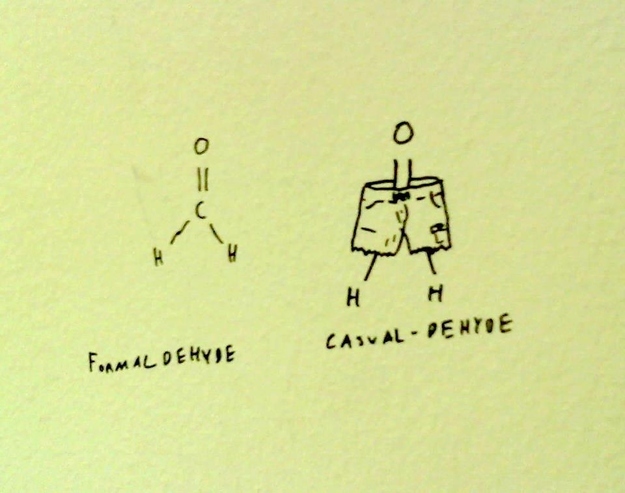 O
C
H H
FORMALDEHYDE
O
H H
CASUAL-DEHYDE